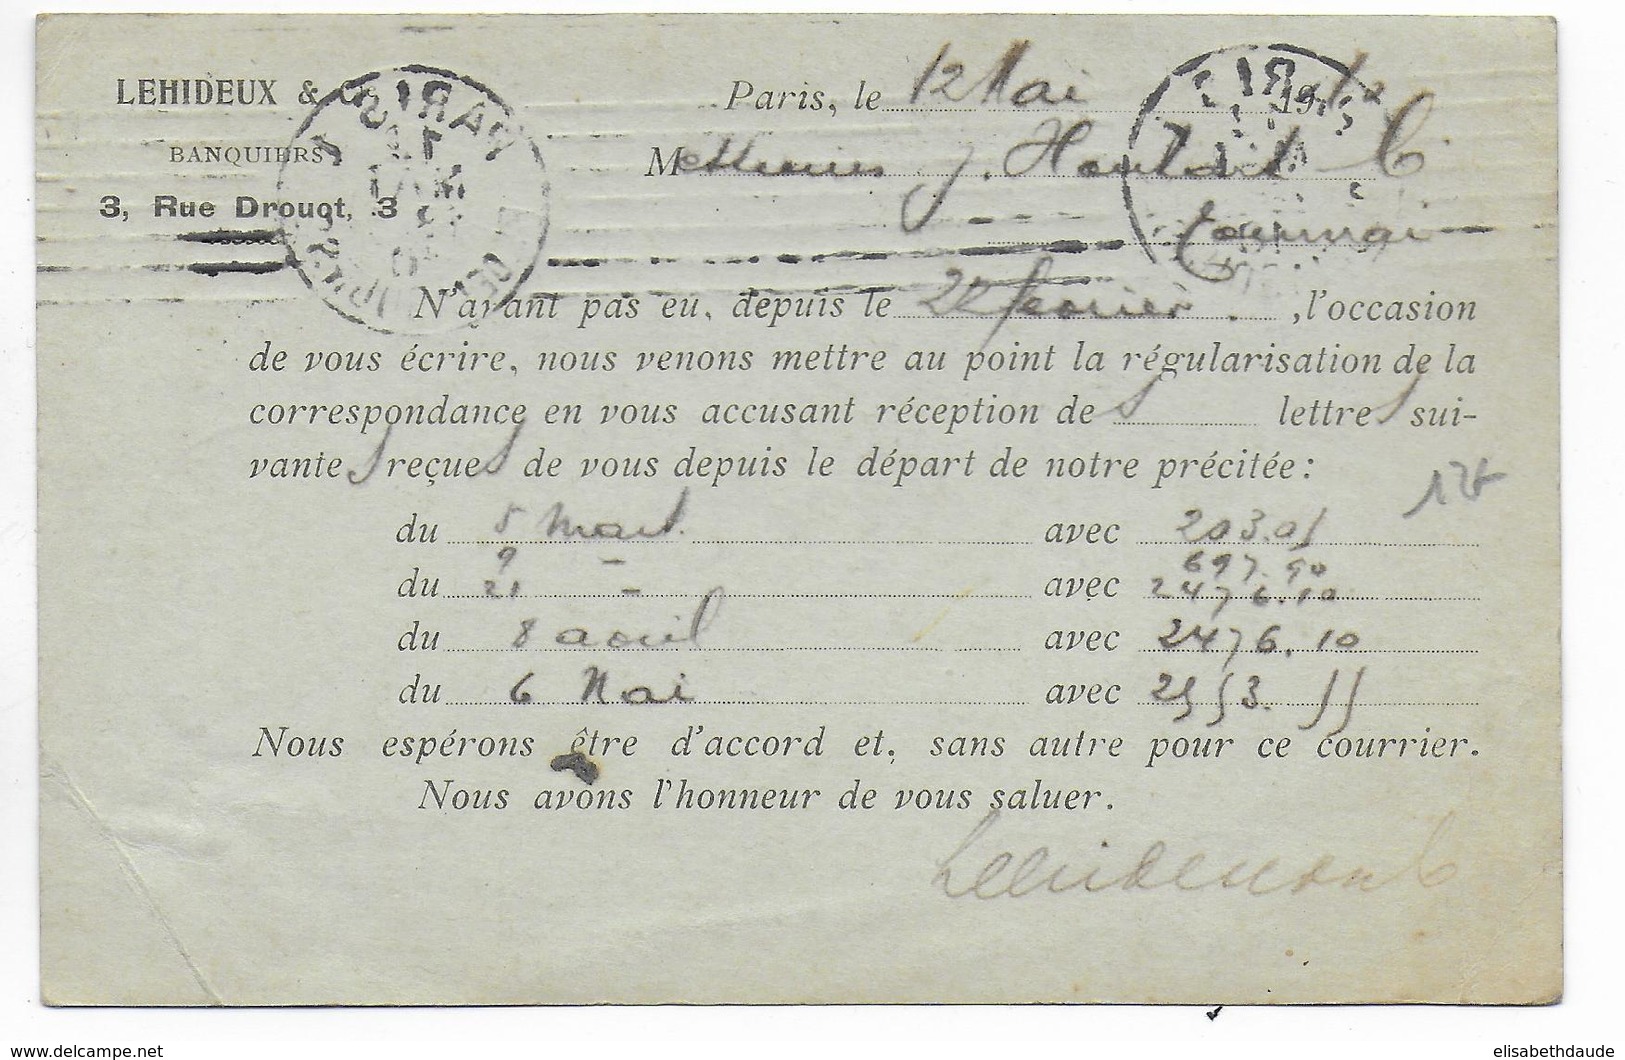 LEHIDEUX & Cie
BANQUIERS
3, Rue Drouot, 3
Paris, le 12 Mai 191
Messieurs J. &
Tournai
N'ayant pas eu, depuis le 22 février , l'occasion
de vous écrire, nous venons mettre au point la régularisation de la
correspondance en vous accusant réception de s lettres sui-
vantes reçues de vous depuis le départ de notre précitée :
du 5 Mars. avec 203.01
9 - 697.90
du 21 - avec 2476.10
du 8 avril avec 2476.10
du 6 Mai avec 2553.55
Nous espérons être d'accord et, sans autre pour ce courrier.
Nous avons l'honneur de vous saluer.
PARIS
www.delcampe.net
elisabethdaude